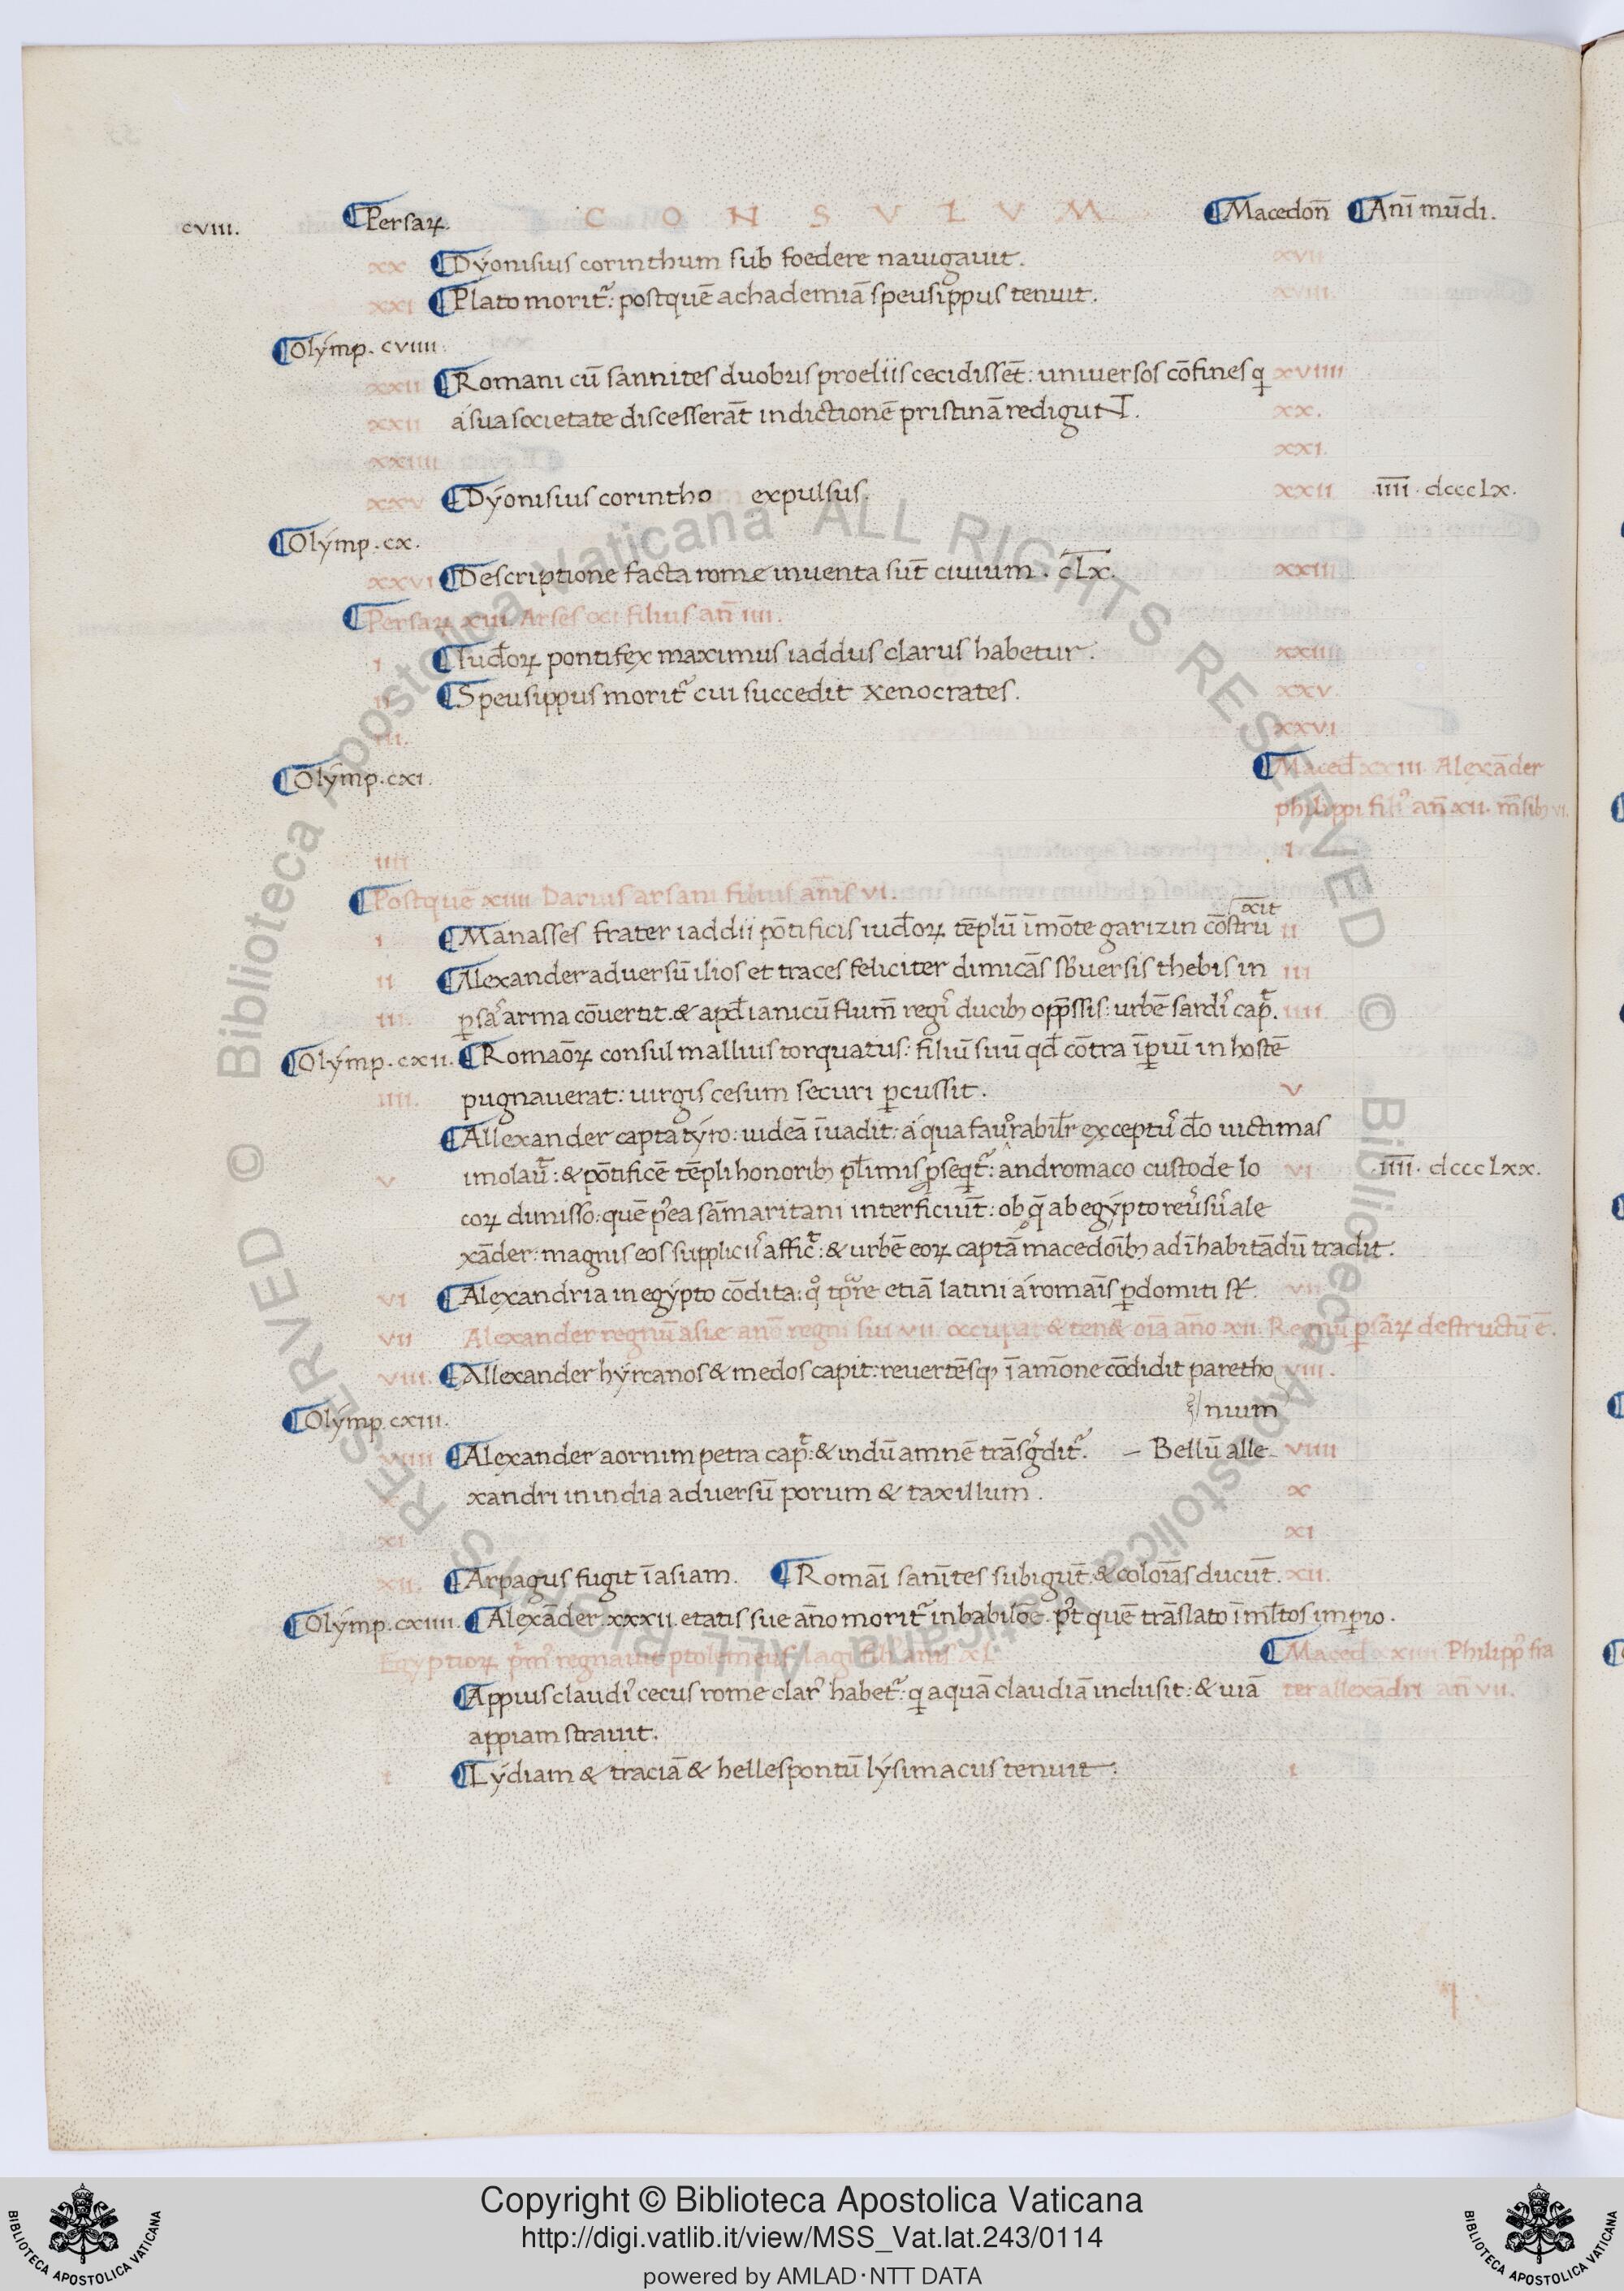 cviii. ¶Persaꝝ. C O N S V L V M ¶Macedon̄ ¶Ani̅ mūdi.
xx ¶Dýonisius corinthum sub foedere nauigauit. xvii
xxi ¶Plato moritͬ: postquē achademiā speusippus tenuit. xviii.
¶Olýmp. cviiii.
xxii ¶Romani cū sannites duobus proeliis cecidissēt: uniuersos cōfines q xviiii
xxii á sua societate discesserāt in dictionē pristinā redigūt. xx.
xxiiii xxi.
xxv ¶Dýonisius corintho expulsus. xxii .iiii. dccclx.
¶Olýmp. cx.
xxvi ¶Descriptione facta rome inuenta sūt ciuium. clx. xxiii
¶Persaꝝ xiii. Arses oci filius an̄ iiii.
i ¶Iud̄oꝝ pontifex maximus iaddus clarus habetur. xxiiii
ii ¶Speusippus moritͬ cui succedit xenocrates. xxv.
iii. xxvi
¶Olýmp. cxi. ¶Maced̄ xxiii. Alexāder
philippi fili᾿ an̄ xii. m̄sib; vi.
iiii i
¶Postquē xiiii Darius arsani filius an̄is vi.
xit
i ¶Manasses frater iaddii pōtificis iud̄oꝝ tēplū ī mōte garizin cōstru ii
ii ¶Alexander aduersū ilios et traces feliciter dimicās sb̄uersis thebis in iii
iii. ꝑsaͬ arma cōuertit. & apd̄ ianicū flum̄ regi᾿ ducib; opp̄ssis: urbē sardi᾿ cap̄ͭ. iiii
¶Olýmp. cxii. ¶Romaōꝝ consul mallius torquatus: filiū suū qd̄ cōtra īꝑiū in hostē
iiii. pugnauerat: uirgis cesum securi ꝑcussit. v
¶Allexander capta týro: iudeā īuadit: á qua fauͦrabil̄r exceptu᾿ d̄o uictimas
v imolauͭ: & pōtificē tēpli honorib; pl̄imis ꝓseqtͬ: andromaco custode lo vi .iiii. dccclxx.
coꝝ dimisso: quē p᾿ea sāmaritani interficiūt: ob q̄ ab egýpto reu᾿su᾿ ale
xāder: magnis eos supplicii᾿ afficͭ: & urbē eoꝝ captā macedoīb; ad īhabitādū tradit.
vi ¶Alexandria in egýpto cōdita: qͦ tp̄re etiā latini á romaīs ꝑdomiti st̄. vii
vii Alexander regnū asie anō regni sui vii. occupat & ten& oīa ano xii. Regnū ꝑsāꝝ destructū ē.
viii. ¶Allexander hýrcanos & medos capit: reuertēsq; ī amone cōdidit paretho viii.
¶Olýmp. cxiii. nium
viiii ¶Alexander aornim petra cap̄ͭ: & indū amnē trāsgͬditͬ. – Bellū alle- viiii
x xandri in india aduersū porum & taxillum. x
xi xi
xii. ¶Arpagus fugit ī asiam. ¶Romaī sanītes subigūt & coloīas ducūt. xii.
¶Olýmp. cxiiii. ¶Alexāder. xxxii. etatis sue ano moritͬ in babiloē. p᾿t quē trāslato ī ml̄tos imꝑio.
Egyptioꝝ pͥm᾿ regnauit ptolemeus lagi fili᾿ anis xl ¶Maced xxiiii Philipp᾿ fra
¶Appius claudi᾿ cecus rome clar᾿ habetͬ: q aquā claudiā inclusit: & uiā ter allexādri an̄ vii.
appiam strauit.
i ¶Lýdiam & traciā & hellespontū lýsimacus tenuit. i
Copyright © Biblioteca Apostolica Vaticana
http://digi.vatlib.it/view/MSS_Vat.lat.243/0114
powered by AMLAD·NTT DATA
BIBLIOTECA APOSTOLICA VATICANA
BIBLIOTECA APOSTOLICA VATICANA
© Biblioteca Apostolica Vaticana ALL RIGHTS RESERVED © Biblioteca Apostolica Vaticana ALL RIGHTS RESERVED